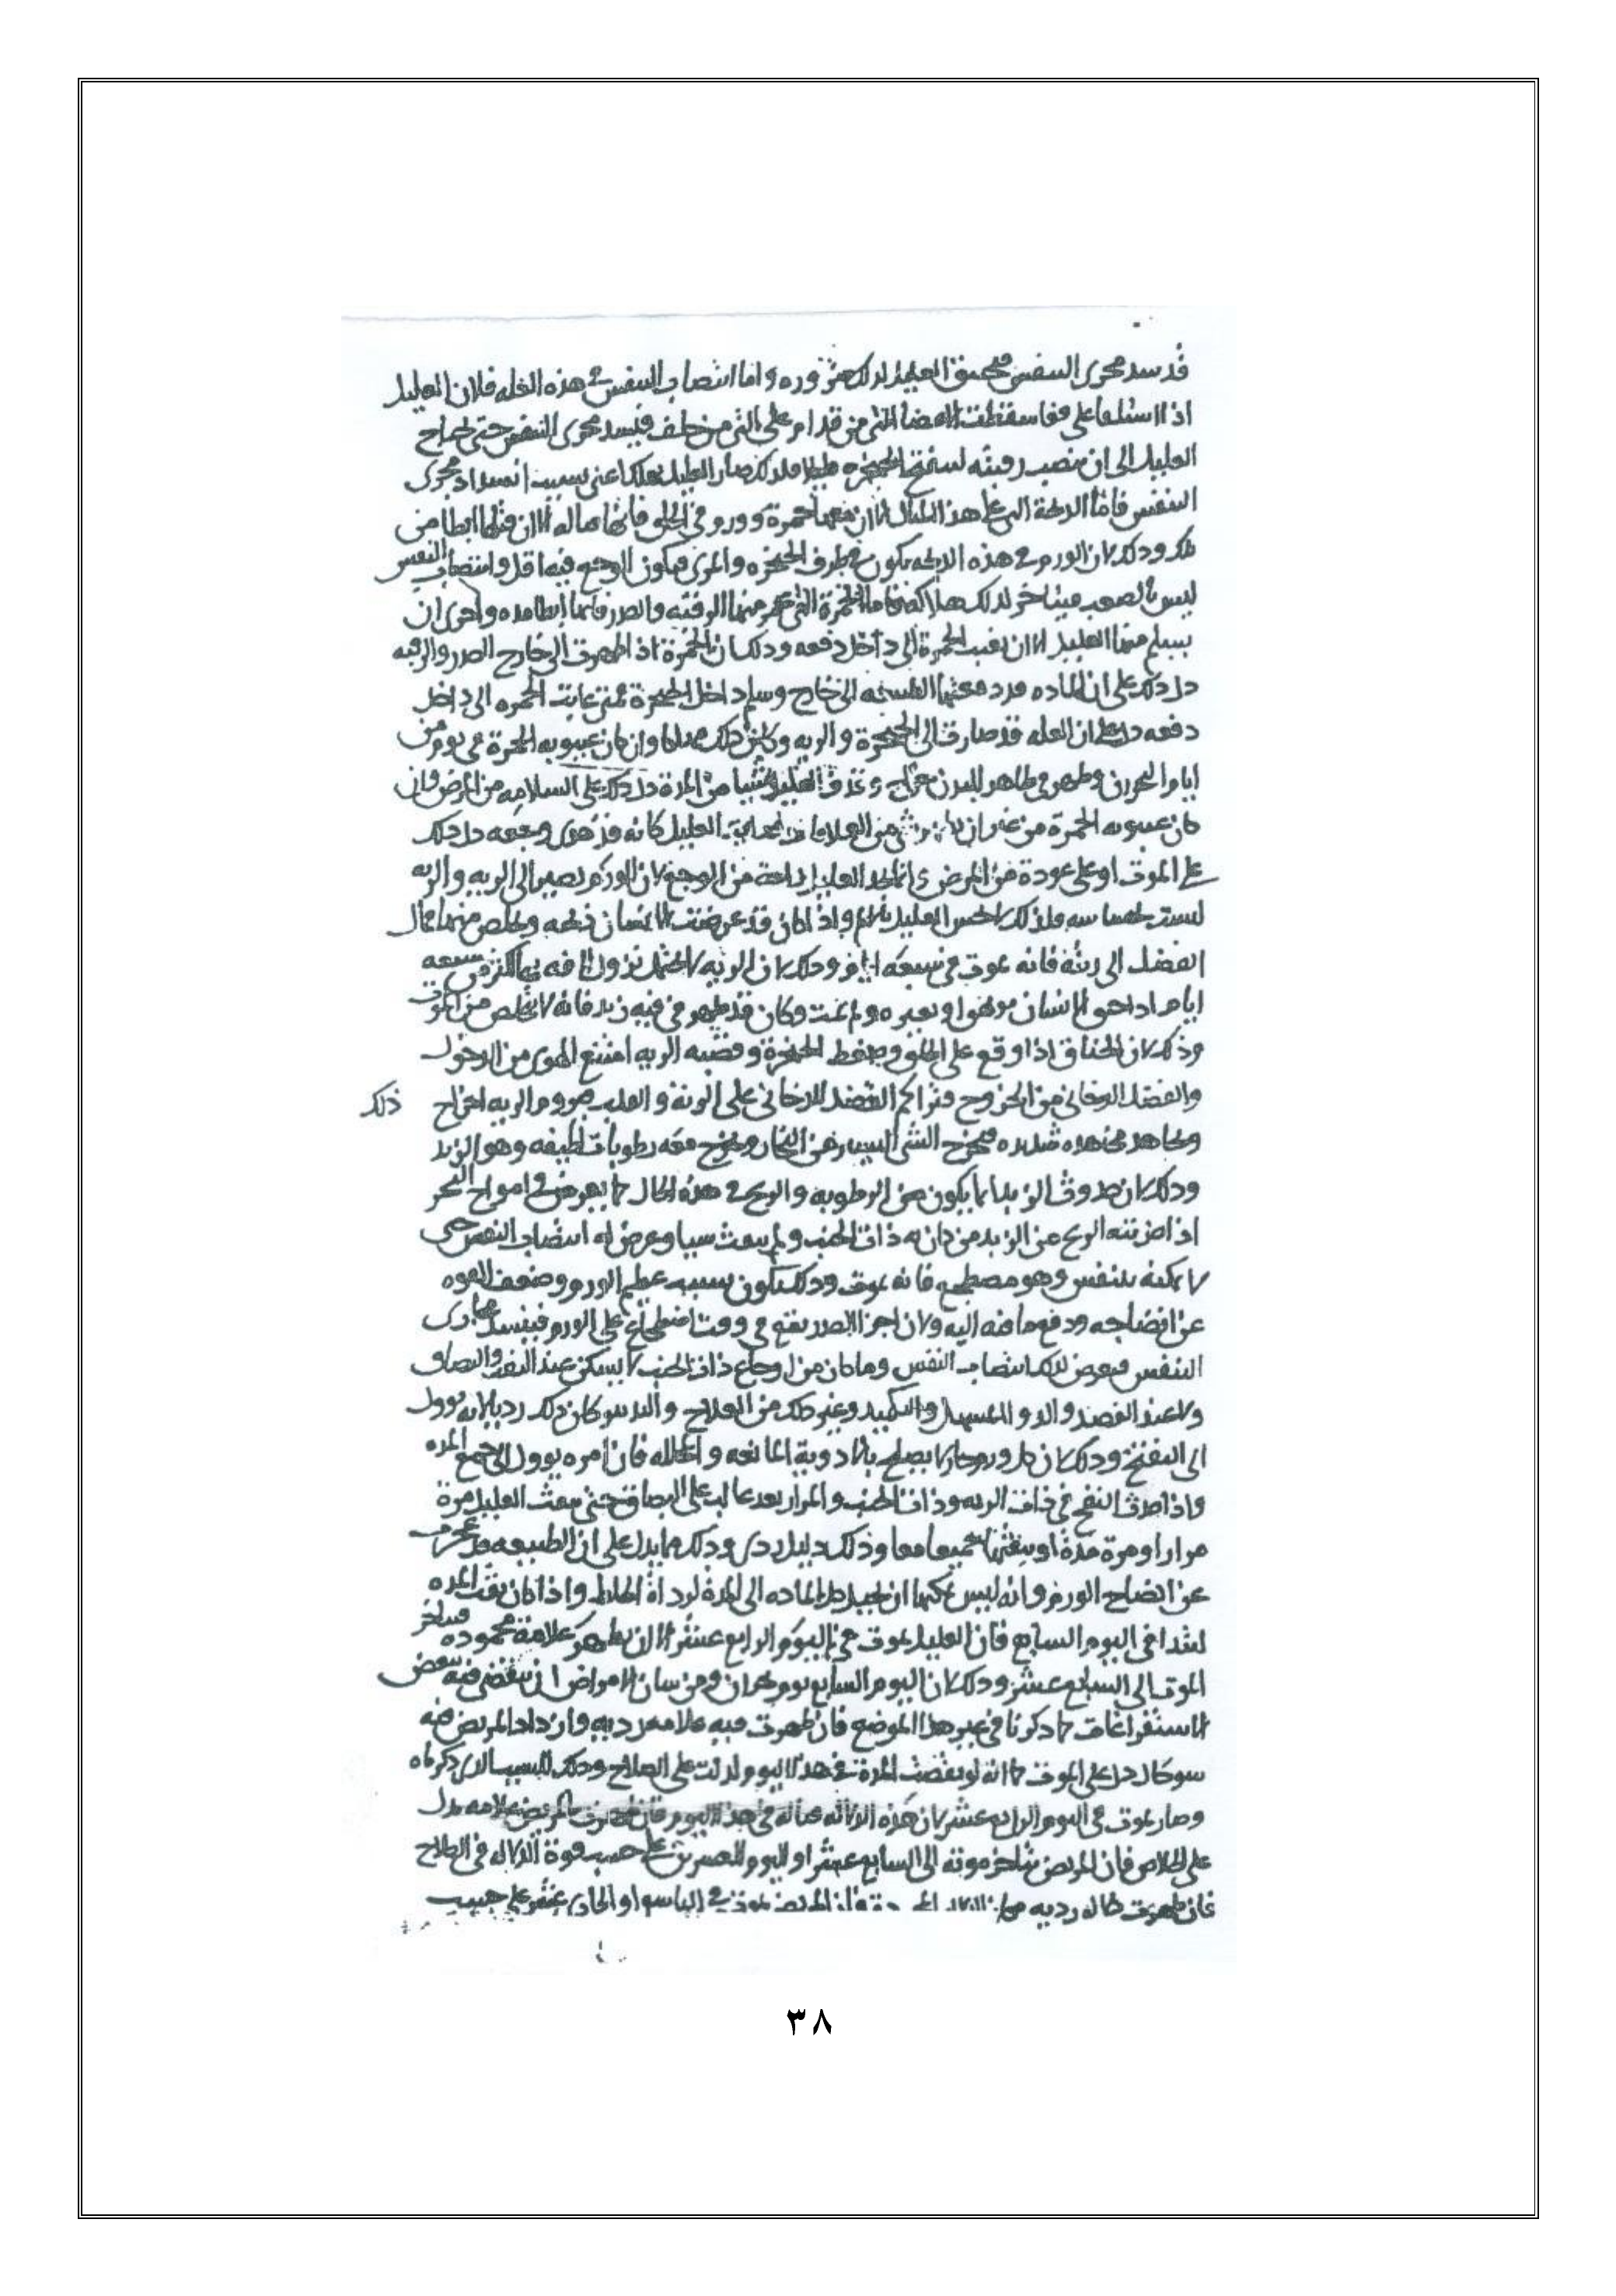 قد سد مجرى النفس فيختنق العليل لذلك ضروره واما انتصاب النفس في هذه العله فلان العليل
اذا استلقا على قفا سقطت الاعضا التي من قدام على التي من خلف فيسد مجرى النفس حتى يحتاج
العليل الى ان ينصب رقبته لتنفتح الحنجره فلذلك صار العليل يهلك اعني بسبب انسداد مجرى
النفس فاما الذبحة التي على هذا المثال الا ان معها حمرة وورم في الحلق فانها قتاله الا ان قتلها ابطا من
تلك وذلك لان الورم في هذه الذبحه يكون في طرف الحنجره والمرى فيكون الوجع فيه اقل وانتصاب النفس
ليس بالصعب فيتاخر لذلك هلاكه فاما الحمرة التي تحمر منها الرقبه والصدر فانها ابطا مده واحرى ان
يسلم منها العليل الا ان تغيب الحمرة الى داخل دفعه وذلك ان الحمرة اذا ظهرت الى خارج الصدر والرقبه
دل ذلك على ان الماده قد دفعتها الطبيعه الى خارج وسلم داخل الحنجرة فمتى غابت الحمره الى داخل
دفعه دل على ان العله قد صارت الى الحنجرة والريه وكان ذلك مهلكا وان كان غيبوبه الحمرة في يوم من
ايام البحران وظهر في ظاهر البدن خراج وقذف العليل شيا من المدة دل ذلك على السلامه من المرض وان
كان غيبوبه الحمرة من غير ان شي من العلامات العليل كانه قد هدى وجعه دل ذلك
على الموت او على عودة من المرض وانما يجد العليل راحة من الوجع لان الورم يصير الى الريه والريه
ليست بحساسه فلذلك لا يحس العليل بالم واذا كان قد عرضت لانسان ذبحه وتخلص منها فمال
الفضل الى رئته فانه يموت في سبعه ايام وذلك لان الريه لا تحتمل نزول الافه بها اكثر من سبعه
ايام اذا خنق الانسان او بغيره ولم يمت وكان قد ظهر في فيه زبد فانه لا يتخلص من الموت
وذلك لان الخناق اذا وقع على الحلق وضغط الحنجرة وقصبه الريه امتنع الهوى من الدخول
والفضل الدخاني من الخروج فتراكم الفضل الدخاني على الريه والقلب فيروم الريه اخراج ذلك
وتجاهد مجاهده شديده فيخرج الشي اليسير من البخار ويخرج معه رطوبات لطيفه وهو الزبد
وذلك لان حدوث الزبد انما يكون من الرطوبه والريح في هذه الحال كما يعرض في امواج البحر
اذا ضربته الريح من الزبد من كان به ذات الجنب ولم ينفث شيا وعرض له انتصاب النفس حتى
لا يمكنه يتنفس وهو مضطجع فانه يموت وذلك يكون بسبب عظم الورم وضعف القوه
عن انضاجه ودفع ما فيه اليه ولان اجزا الصدر يقع في وقت اضطجاع على الورم فينسد مجارى
النفس فيعرض لذلك انتصاب النفس وما كان من اوجاع ذات الجنب لا يسكن عند النفث والبصاق
ولا عند الفصد والدوا المسهل والتكميد وغير ذلك من العلاج والتدبير كان ذلك رديا لانه يوول
الى التفتح وذلك لان كل ورم حار لا يصلح بالادوية المانعه والمحلله فان امره يوول الى جمع المده
واذا حدث التفتح في ذات الريه وذات الجنب والمرار بعد غالب على البصاق حتى ينفث العليل مرة
مرارا ومرة مدة او ينفثهما جميعا معا وذلك دليل ردى وذلك مما يدل على ان الطبيعه قد عجزت
عن انضاج الورم وانه ليس يمكنها ان تحيل كل الماده الى المدة لرداة الخلط واذا كان نفث المده
ابتدا في اليوم السابع فان العليل يموت في اليوم الرابع عشر الا ان يظهر علامة محموده فيتاخر
الموت الى السابع عشر وذلك لان اليوم السابع يوم بحران ومن شان الامراض ان ينقضي فيه ببعض
الاستفراغات كما ذكرنا في غير هذا الموضع فان ظهرت فيه علامه رديه وازداد المريض فيه
سو حال دل على الموت كما انه لو نفث المدة في هذا اليوم لدلت على الصلاح وذلك للسبب الذي ذكرناه
وصار يموت في اليوم الرابع عشر لان هذه الدلاله في هذا اليوم فان ظهرت بالمريض علامه تدل
على الخلاص فان المريض يتاخر موته الى السابع عشر او اليوم العشرين على حسب قوة الدلاله في الصلاح
فان ظهرت دلاله رديه فان المريض يموت في التاسع او الحادي عشر على حسب
٣٨